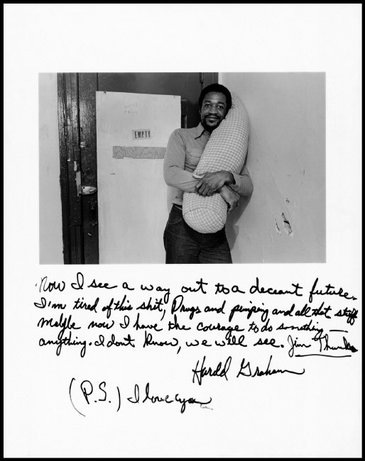 EMPTY
Now I see a way out to a deceant future.
I'm tired of this shit, Drugs and pimping and all that stuff
Maybe now I have the courage to do somthing —
anything. I don't know, we will see. Jim Thanks
Harold Graham
(P.S.) I love you